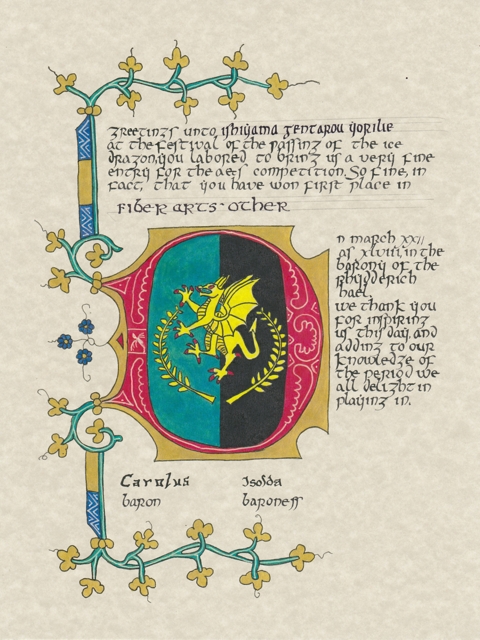 Greetings unto Ishiyama Gentarou Yorilie
at the festival of the passing of the ice
dragon, you labored to bring us a very fine
entry for the a&s competition. So fine, in
fact, that you have won first place in
fiber arts - other
n march xxii
as xlviii, in the
barony of the
Rhydderich
hael.
we thank you
for inspiring
us this day, and
adding to our
knowledge of
the period we
all delight in
playing in.
Carolus Isolda
baron baroness